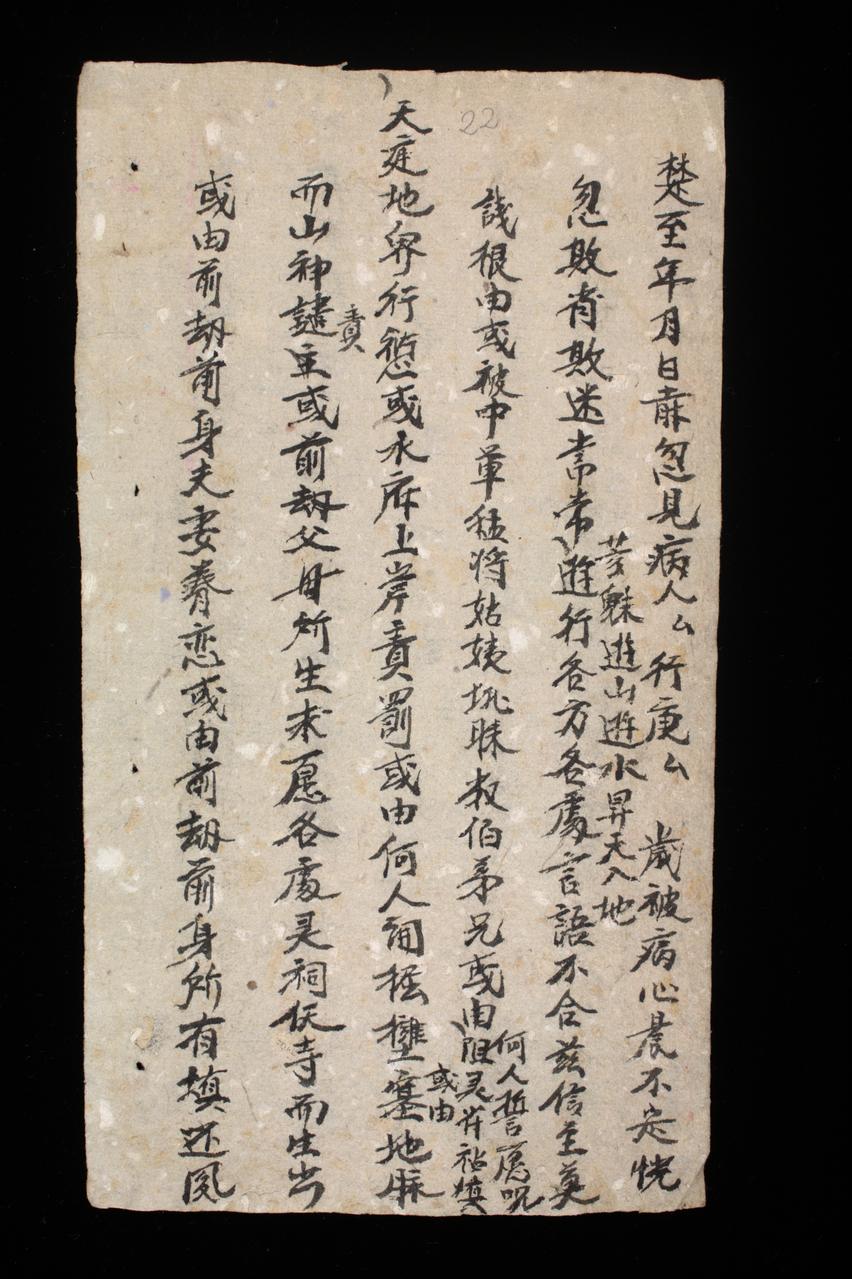 22
楚至年月日前忽見病人厶行庚厶歲被病心晨不定恍
芸魅遊山遊水昇天入地
忽敗肯敗迷常常遊行各方各處言語不合茲信主莫
識根由或被中軍猛将姑姨挑昧叔伯弟兄或由
何人誓愿呪
阻灵祐填
或由
天庭地界行愆或水府上岸責罰或由何人開掘壅塞地脉
而山神譴主或前劫父母所生求愿各處灵祠伕寺而生当
責
或由前劫前身夫妻眷恋或由前劫前身所有填还夙